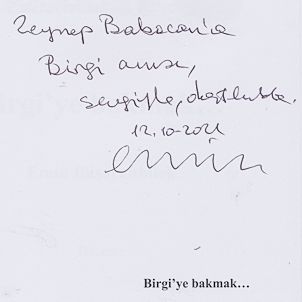 Zeynep Babacan'a
Birgi anısı,
sevgiyle, dostlukla.
12.10-2021
Emin
Birgi'ye bakmak...